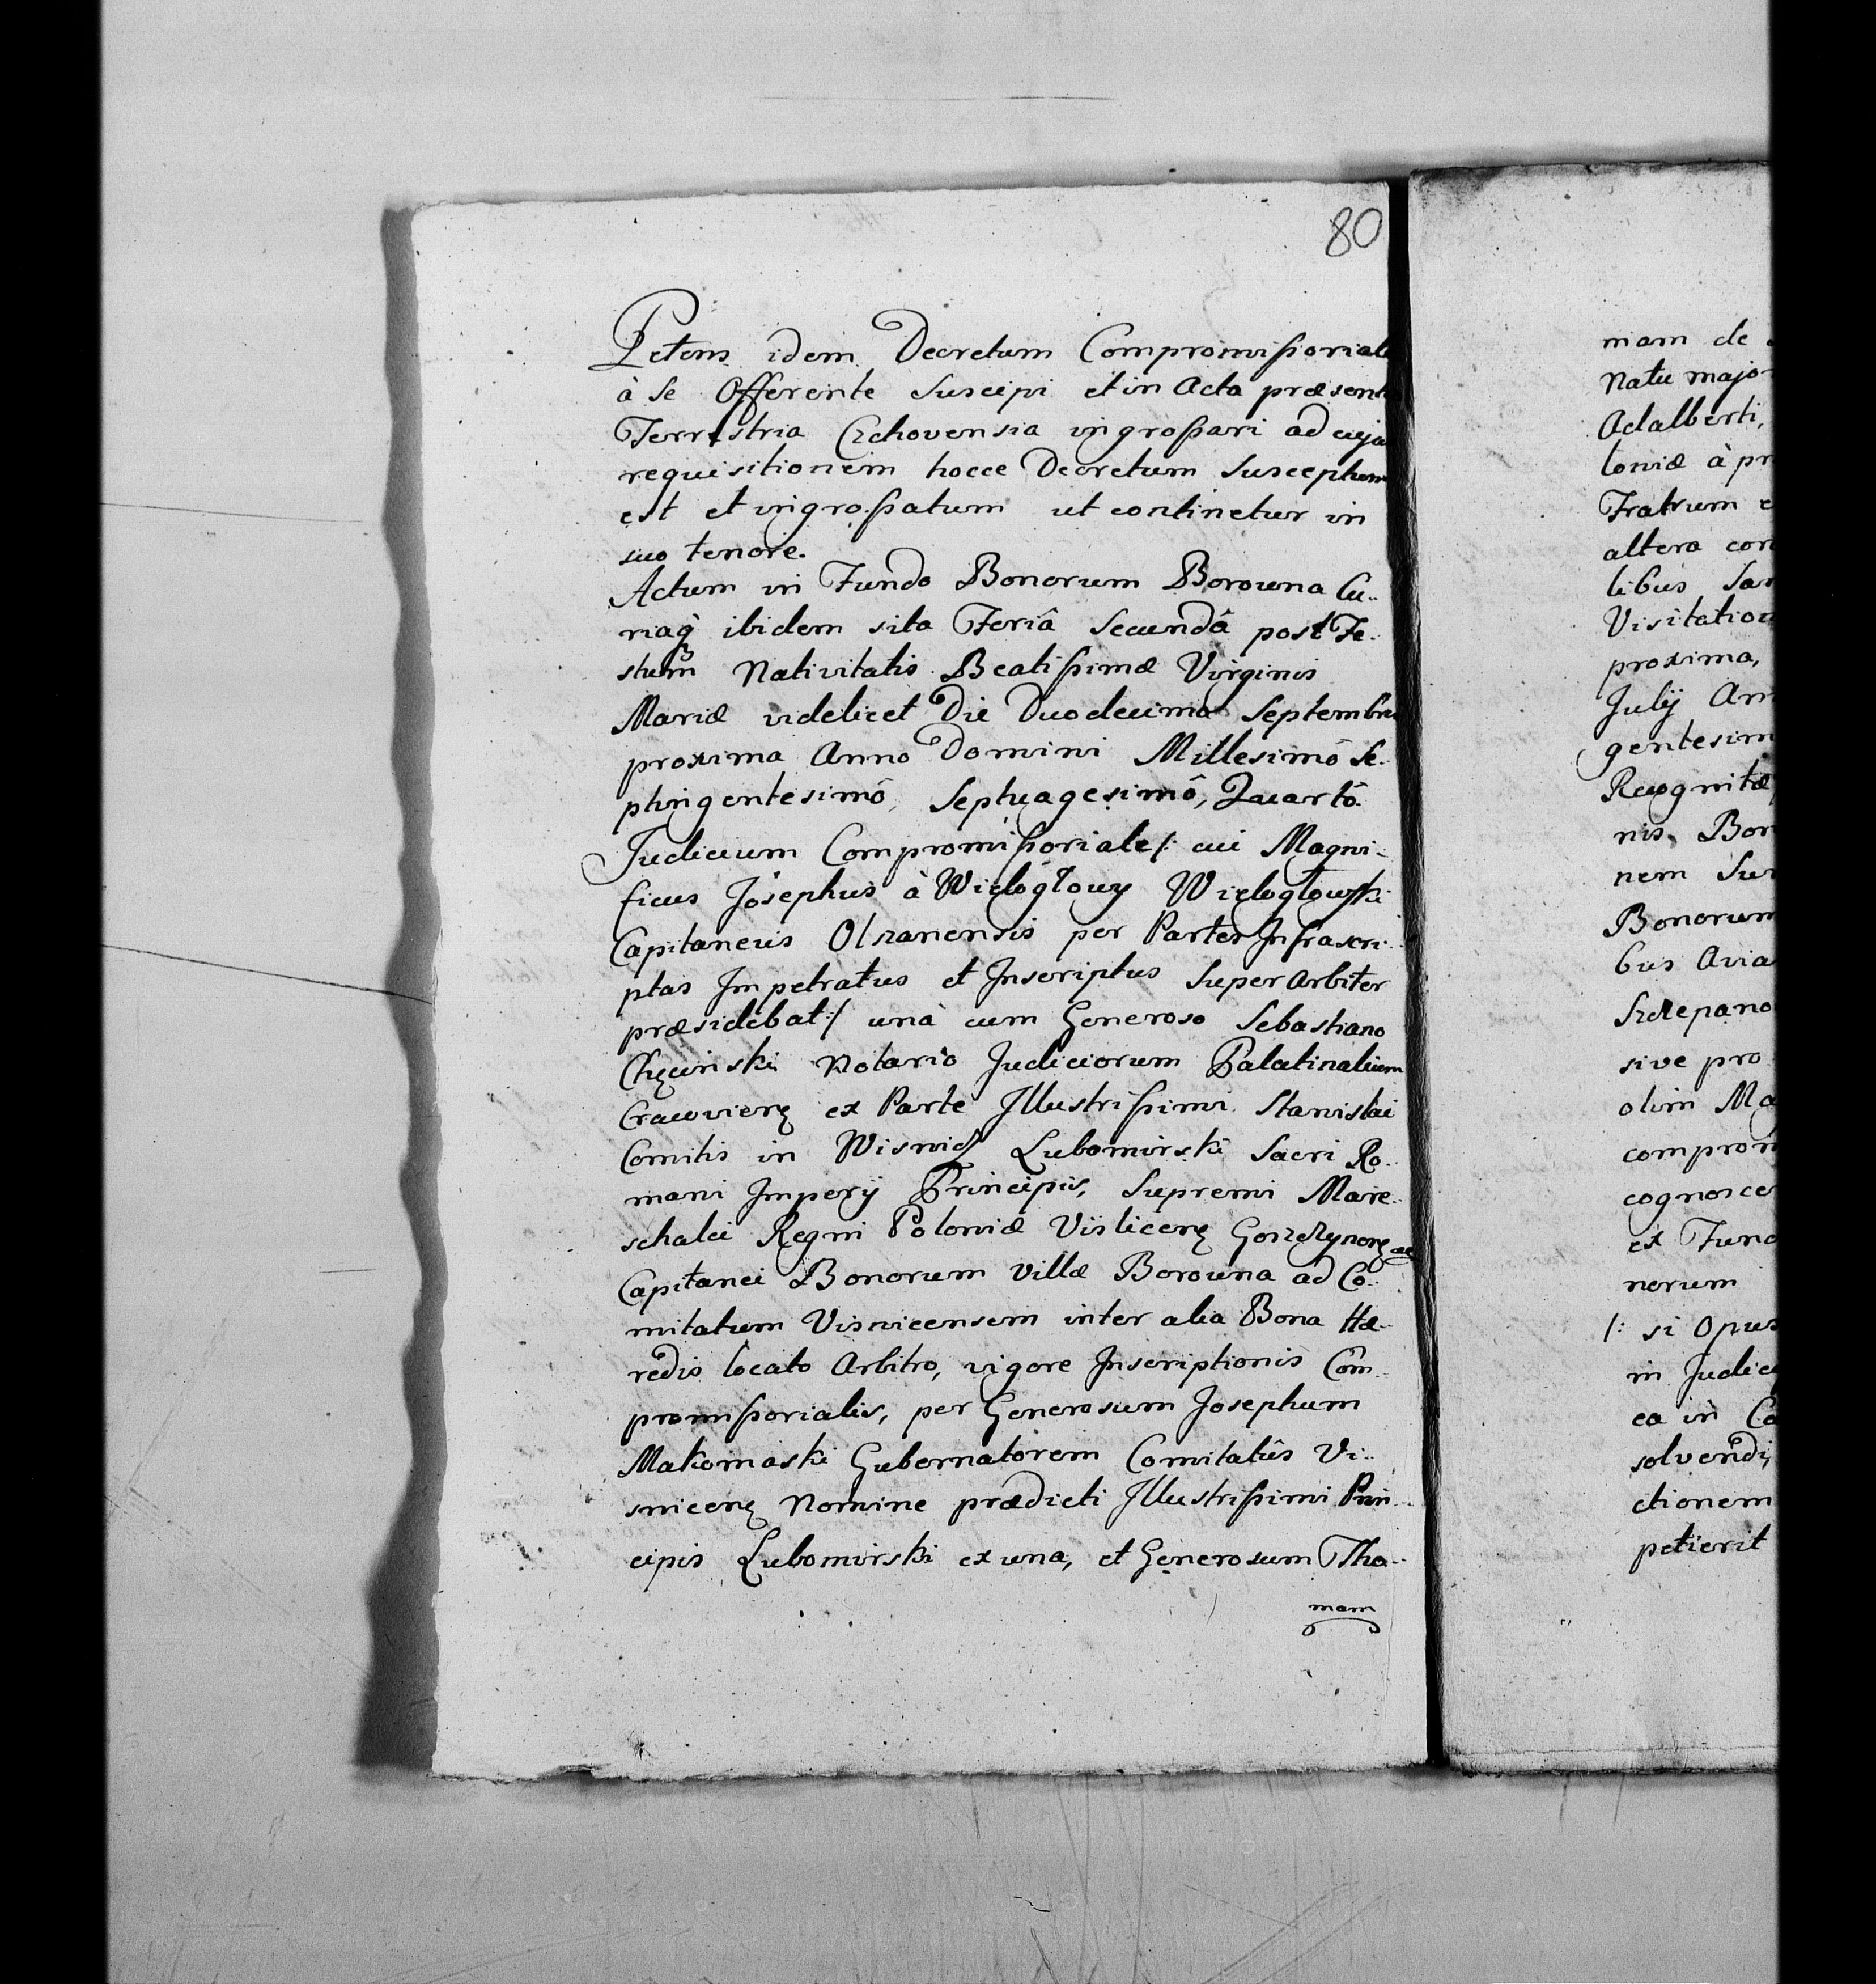 80
Petens idem Decretum Compromissoriale
à Se Offerente Suscipi et in Acta præsentia
Terrestria Czchovensia ingrossari ad cuja
requisitionem hocce Decretum Susceptum
est et ingrossatum ut continetur in
suo tenore.
Actum in Fundo Bonorum Borowna Cu-
riaq3 ibidem sita Feriâ Secundâ post Fe-
stum Nativitatis Beatissimæ Virginis
Mariæ videlicet Die Duodecima Septembris
proxima Anno Domini Millesimô Se-
ptingentesimô, Septuagesimô, Quartô
Judicium Compromissoriale /: cui Magni-
ficus Josephus à Wielogłowy Wielogłowski
Capitaneus Olszanensis per Partes Infrascri-
ptas Impetratus et Inscriptus Super Arbiter
præsidebat :/ unà cum Generoso Sebastiano
Chęciński Notario Judiciorum Palatinalium
Cracovien ex Parte Illustrissimi Stanislai
Comitis in Wisnicz Lubomirski Sacri Ro-
mani Imperÿ Principis, Supremi Mare-
schalci Regni Poloniæ Vislicen
Capitanei Bonorum Villæ Borowna ad Co-
mitatum Visnicensem inter alia Bona Hæ-
redis locato Arbitro, vigore Inscriptionis Com-
promissorialis, per Generosum Josephum
Makomaski Gubernatorem Comitatûs Vi-
snicen Nomine prædicti Illustrissimi Prin-
cipis Lubomirski ex una, et Generosum Tho-
mam
mam de
Natu major
Adalberti,
loniæ à pr
Fratrum e
altera cor
libus San
Visitation
proxima,
Julÿ An
gentesim
Recognitæ
nis, Bor
nem Sur
Bonorum
bus Avia
Szczepano
sive pro
olim Ma
comprom
cognosce
ex Fund
norum
/: si Opus
in Judici
ea in Ca
solvendi,
ctionem
petierit